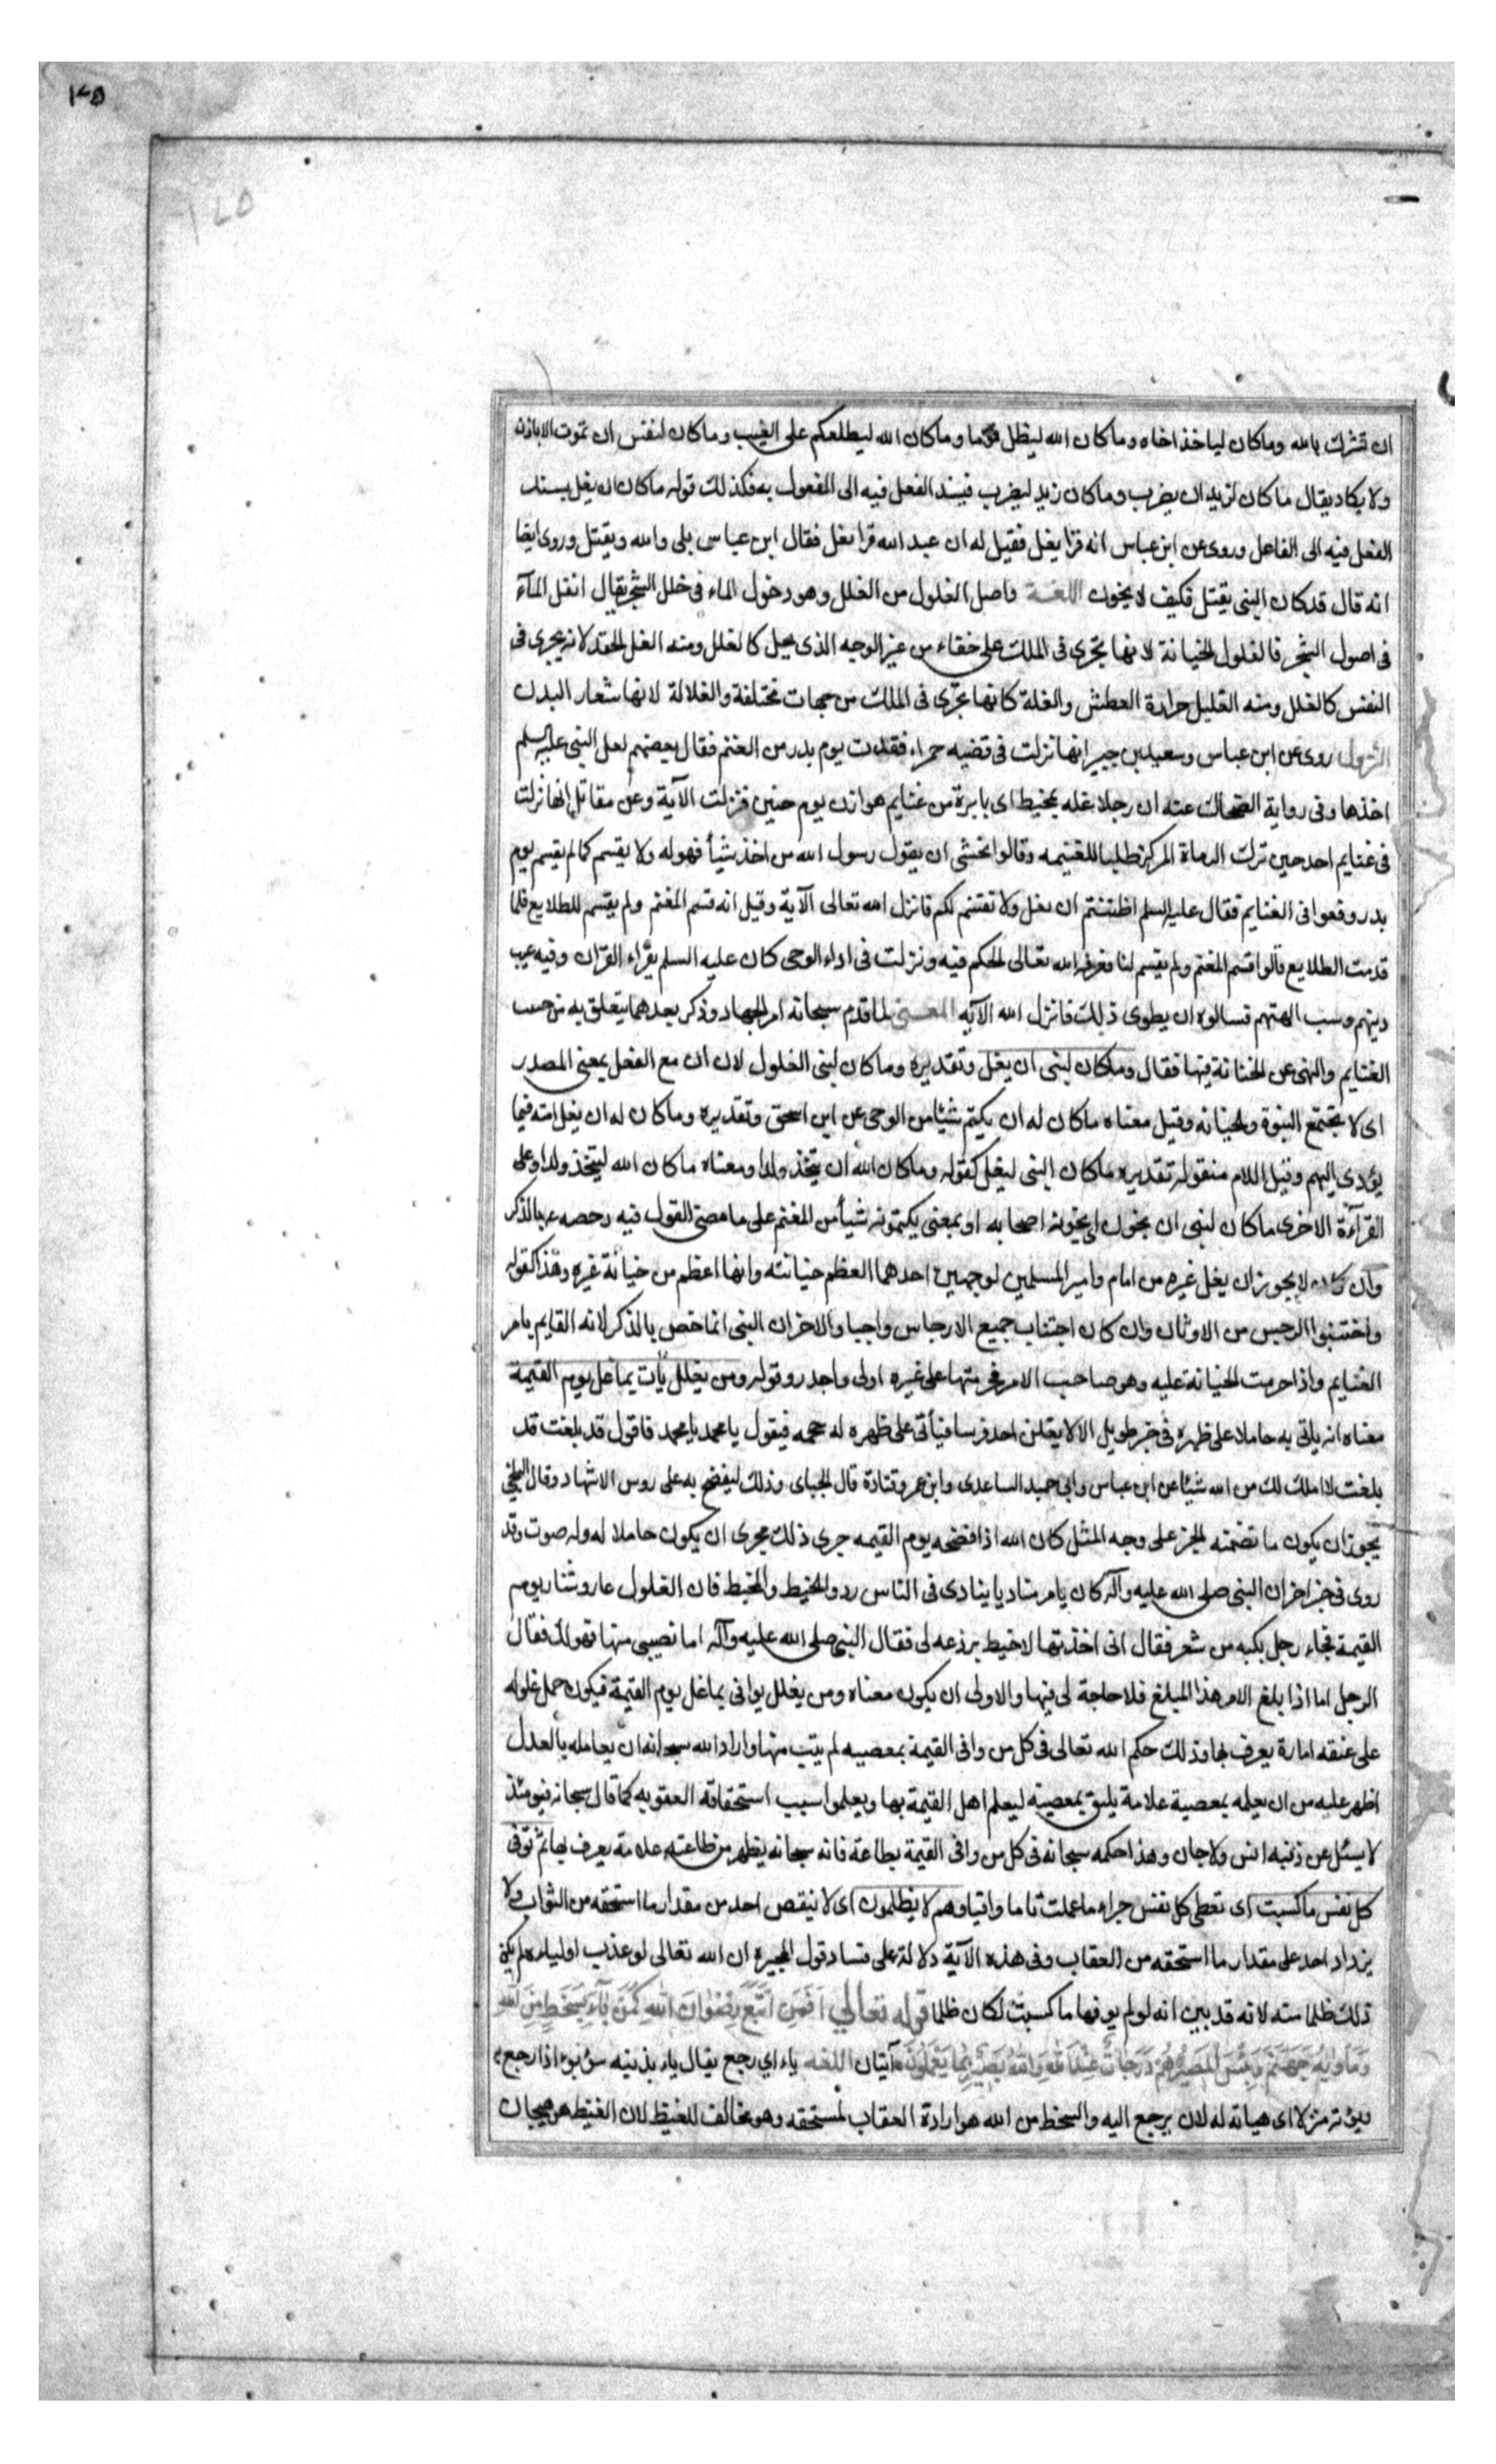 ١٧٥
١٧٥
ان نشرك بالله وماكان لياخذ اخاه وماكان الله ليظل قوما وماكان الله ليطلعكم على الغيب وماكان لنفس ان تموت الاباذن
ولا يكاد يقال ماكان لزيد ان يضرب وماكان زيد ليضرب فيسند الفعل فيه الى المفعول به فكذلك قوله ماكان ان يغل يسند
الفعل فيه الى الفاعل وروى عن ابن عباس انه قرا يغل فقيل له ان عبد الله قرا يغل فقال ابن عباس بلى والله ويقتل وروى ايضا
انه قال قد كان النبى يقتل فكيف لا يخون اللغة واصل الغلول من الغلل وهو دخول الماء فى خلل الشجر يقال انغل المآء
فى اصول الشجر فالغلول الخيانة لانها تجرى فى الملك على خفاء من غير الوجه الذى يحل كالغلل ومنه الغل الحقد لانه يجرى فى
النفس كالغلل ومنه الغليل حرارة العطش والغلة كانها تجرى فى الملك من جهات مختلفة والغلالة لانها شعار البدن
النزول روى عن ابن عباس وسعيد بن جبير انها نزلت فى قضيه حمراء فقدت يوم بدر من الغنم فقال بعضهم لعل النبى عليه السلم
اخذها وفى رواية الضحاك عنه ان رجلا غله بمخيط اى بابرة من غنايم هوازن يوم حنين فنزلت الآية وعن مقاتل انها نزلت
فى غنايم احد حين ترك الرماة المركز طلبا للغنيمه وقالوا نخشى ان يقول رسول الله من اخذ شيأ فهو له ولا يقسم كما لم يقسم يوم
بدر ووقعوا فى الغنايم فقال عليه السلم اظننتم ان نغل ولا نقسم لكم فانزل الله تعالى الآية وقيل انه قسم المغنم ولم يقسم للطلايع فلما
قدمت الطلايع قالوا قسم المغنم ولم يقسم لنا فعرفه الله تعالى الحكم فيه ونزلت فى اداء الوحى كان عليه السلم يقراء القران وفيه عيب
دينهم وسب الهتهم فسالوه ان يطوى ذلك فانزل الله الآيه المعنى لما قدم سبحانه امر الجهاد وذكر بعده ما يتعلق به من حسب
الغنايم والنهى عن الخيانة فيها فقال وماكان لنبى ان يغل وتقديره وماكان لنبى الغلول لان ان مع الفعل بمعنى المصدر
اى لا تجتمع النبوة والخيانه وقيل معناه ماكان له ان يكتم شيئا من الوحى عن ابن اسحق وتقديره وماكان له ان يغل امته فيما
يؤدى اليهم وقيل اللام منقوله تقديره ماكان النبى ليغل كقوله وماكان الله ان يتخذ ولدا ومعناه ماكان الله ليتخذ ولدا وعلى
القرآءة الاخرى ماكان لنبى ان يخون اى يخونه اصحابه او بمعنى يكتمونه شيأ من المغنم على ما مضى القول فيه وخصه بالذكر
وان كان لا يجوز ان يغل غيره من امام وامير المسلمين لوجهين احدهما العظم خيانته وانها اعظم من خيانة غيره وهذا كقوله
واجتنبوا الرجس من الاوثان وان كان اجتناب جميع الارجاس واجبا والاخران النبى انما خص بالذكر لانه القايم بامر
الغنايم واذا حرمت الخيانة عليه وهو صاحب الامر فحرمتها على غيره اولى واجدر وقوله ومن يغلل يأت بما غل يوم القيمة
معناه انه ياتى به حاملا على ظهره فى خبر طويل الا لا يغلن احد فرسا فيأتى على ظهره له حمحمه فيقول يا محمد يا محمد فاقول قد بلغت قد
بلغت لا املك لك من الله شيئا عن ابن عباس وابى حميد الساعدى وابن عمر وقتادة قال الجباى وذلك ليفضح به على روس الاشهاد وقال البلخى
يجوز ان يكون ما تضمنه الخبر على وجه المثل كان الله اذا فضحه يوم القيمه جرى ذلك مجرى ان يكون حاملا له وله صوت وقد
روى فى خبر اخر ان النبى صلى الله عليه وآله كان يامر مناديا ينادى فى الناس ردوا الخيط والمخيط فان الغلول عار وشنار يوم
القيمة فجاء رجل بكبه من شعر فقال انى اخذتها لاخيط برذعه لى فقال النبى صلى الله عليه وآله اما نصيبى منها فهو لك فقال
الرجل اما اذا بلغ الامر هذا المبلغ فلا حاجة لى فيها والاولى ان يكون معناه ومن يغلل يوافى بما غل يوم القيمة فيكون حمل غلوله
على عنقه امارة يعرف بها وذلك حكم الله تعالى فى كل من وافى القيمة بمعصيه لم يتب منها واراد الله سبحانه ان يعامله بالعدل
اظهر عليه من ان يعلمه بمعصية علامة يليق بمعصيته ليعلم اهل القيمة بها ويعلموا سبب استحقاقه العقوبه كما قال سبحانه فيومئذ
لا يسئل عن ذنبه انس ولا جان وهذا حكمه سبحانه فى كل من وافى القيمة بطاعة فانه سبحانه يظهر من طاعته علامة يعرف بها ثم توفى
كل نفس ماكسبت اى تعطى كل نفس جزاء ما عملت تاما وافيا وهم لا يظلمون اى لا ينقص احد من مقدار ما استحقه من الثواب ولا
يزداد احد على مقدار ما استحقه من العقاب وفى هذه الآية دلالة على فساد قول المجبره ان الله تعالى لو عذب اولياءه لم يكن
ذلك ظلما منه لانه قد بين انه لو لم يوفها ماكسبت لكان ظلما قوله تعالى أفمن اتبع رضوان الله كمن باء بسخط من الله
ومأواه جهنم وبئس المصير هم درجات عند الله والله بصير بما يعملون آيتان اللغه باء اي رجع يقال باء بذنبه يبوء بوء اذا رجع
وبوئته منزلا اى هيأته له لان يرجع اليه والسخط من الله هو ارادة العقاب لمستحقه وهو مخالف للغيظ لان الغيظ هو هيجان